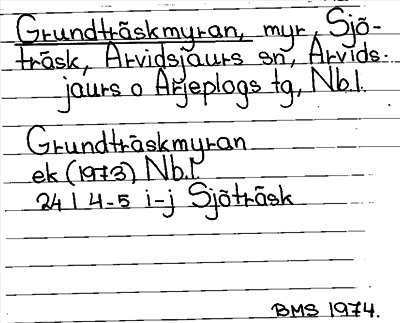 Grundträskmyran, myr, Sjö-
träsk, Arvidsjaurs sn, Arvids-
jaurs o Arjeplogs tg, Nb.l.
Grundträskmyran
ek (1973) Nb.l.
24 I 4-5 i-j Sjöträsk
BMS 1974.